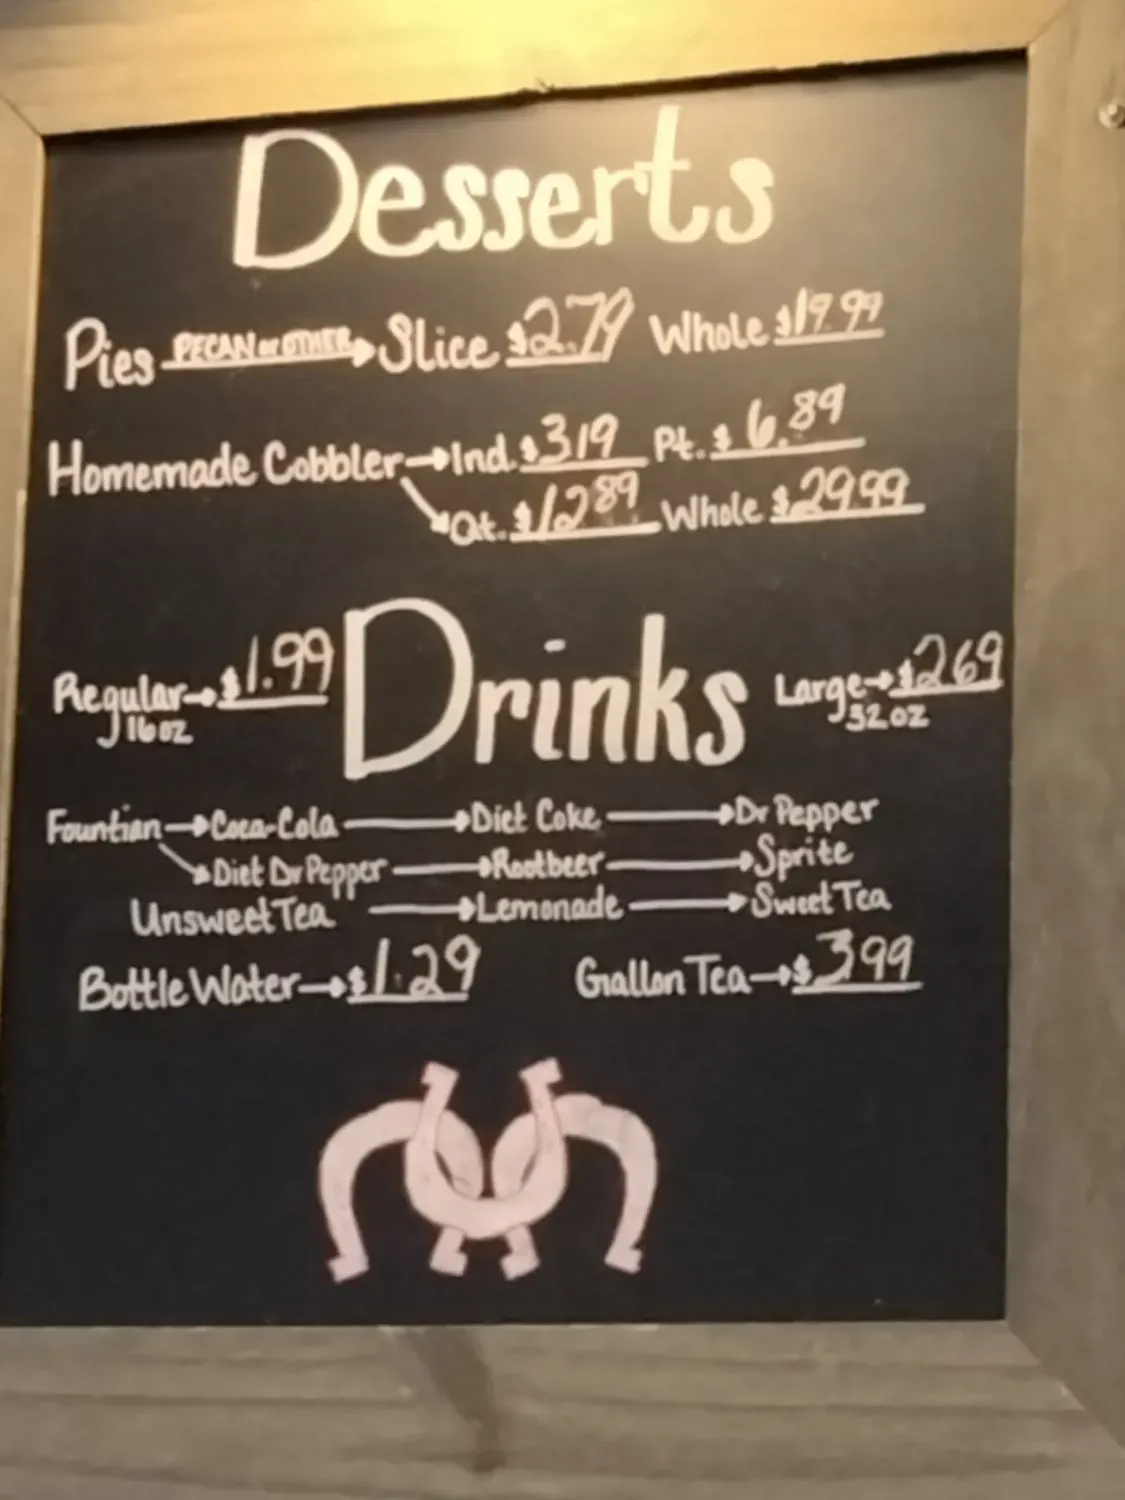 Desserts
Pies PECAN or OTHER Slice $2.79 Whole $19.99
Homemade Cobbler Ind. $3.19 Pt. $6.89
Qt. $12.89 Whole $29.99
Regular $1.99 Drinks Large $2.69
16oz 32oz
Fountian Coca-Cola Diet Coke Dr Pepper
Diet Dr Pepper Rootbeer Sprite
Unsweet Tea Lemonade Sweet Tea
Bottle Water $1.29 Gallon Tea $3.99